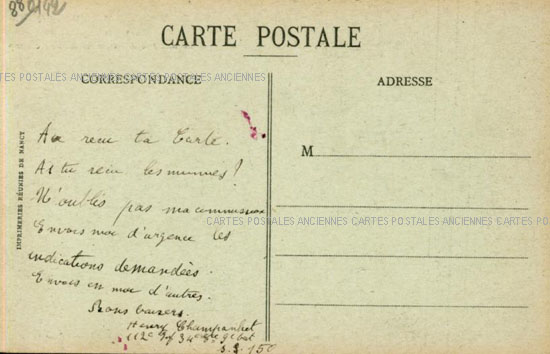 CARTE POSTALE
CARTES POSTALES ANCIENNES CARTES POSTALES ANCIENNES CARTES POSTALES ANCIENNES
CORRESPONDANCE
ADRESSE
M
IMPRIMERIES RÉUNIES DE NANCY
reçu ta Carte.
As tu reçu les miennes?
N'oublis pas ma commission
Envois moi d'urgence les
indications demandées.
Envois en moi d'autres.
Bons baisers
Henry Champanhet
112e
CARTES POSTALES ANCIENNES CARTES POSTALES ANCIENNES CARTES POS